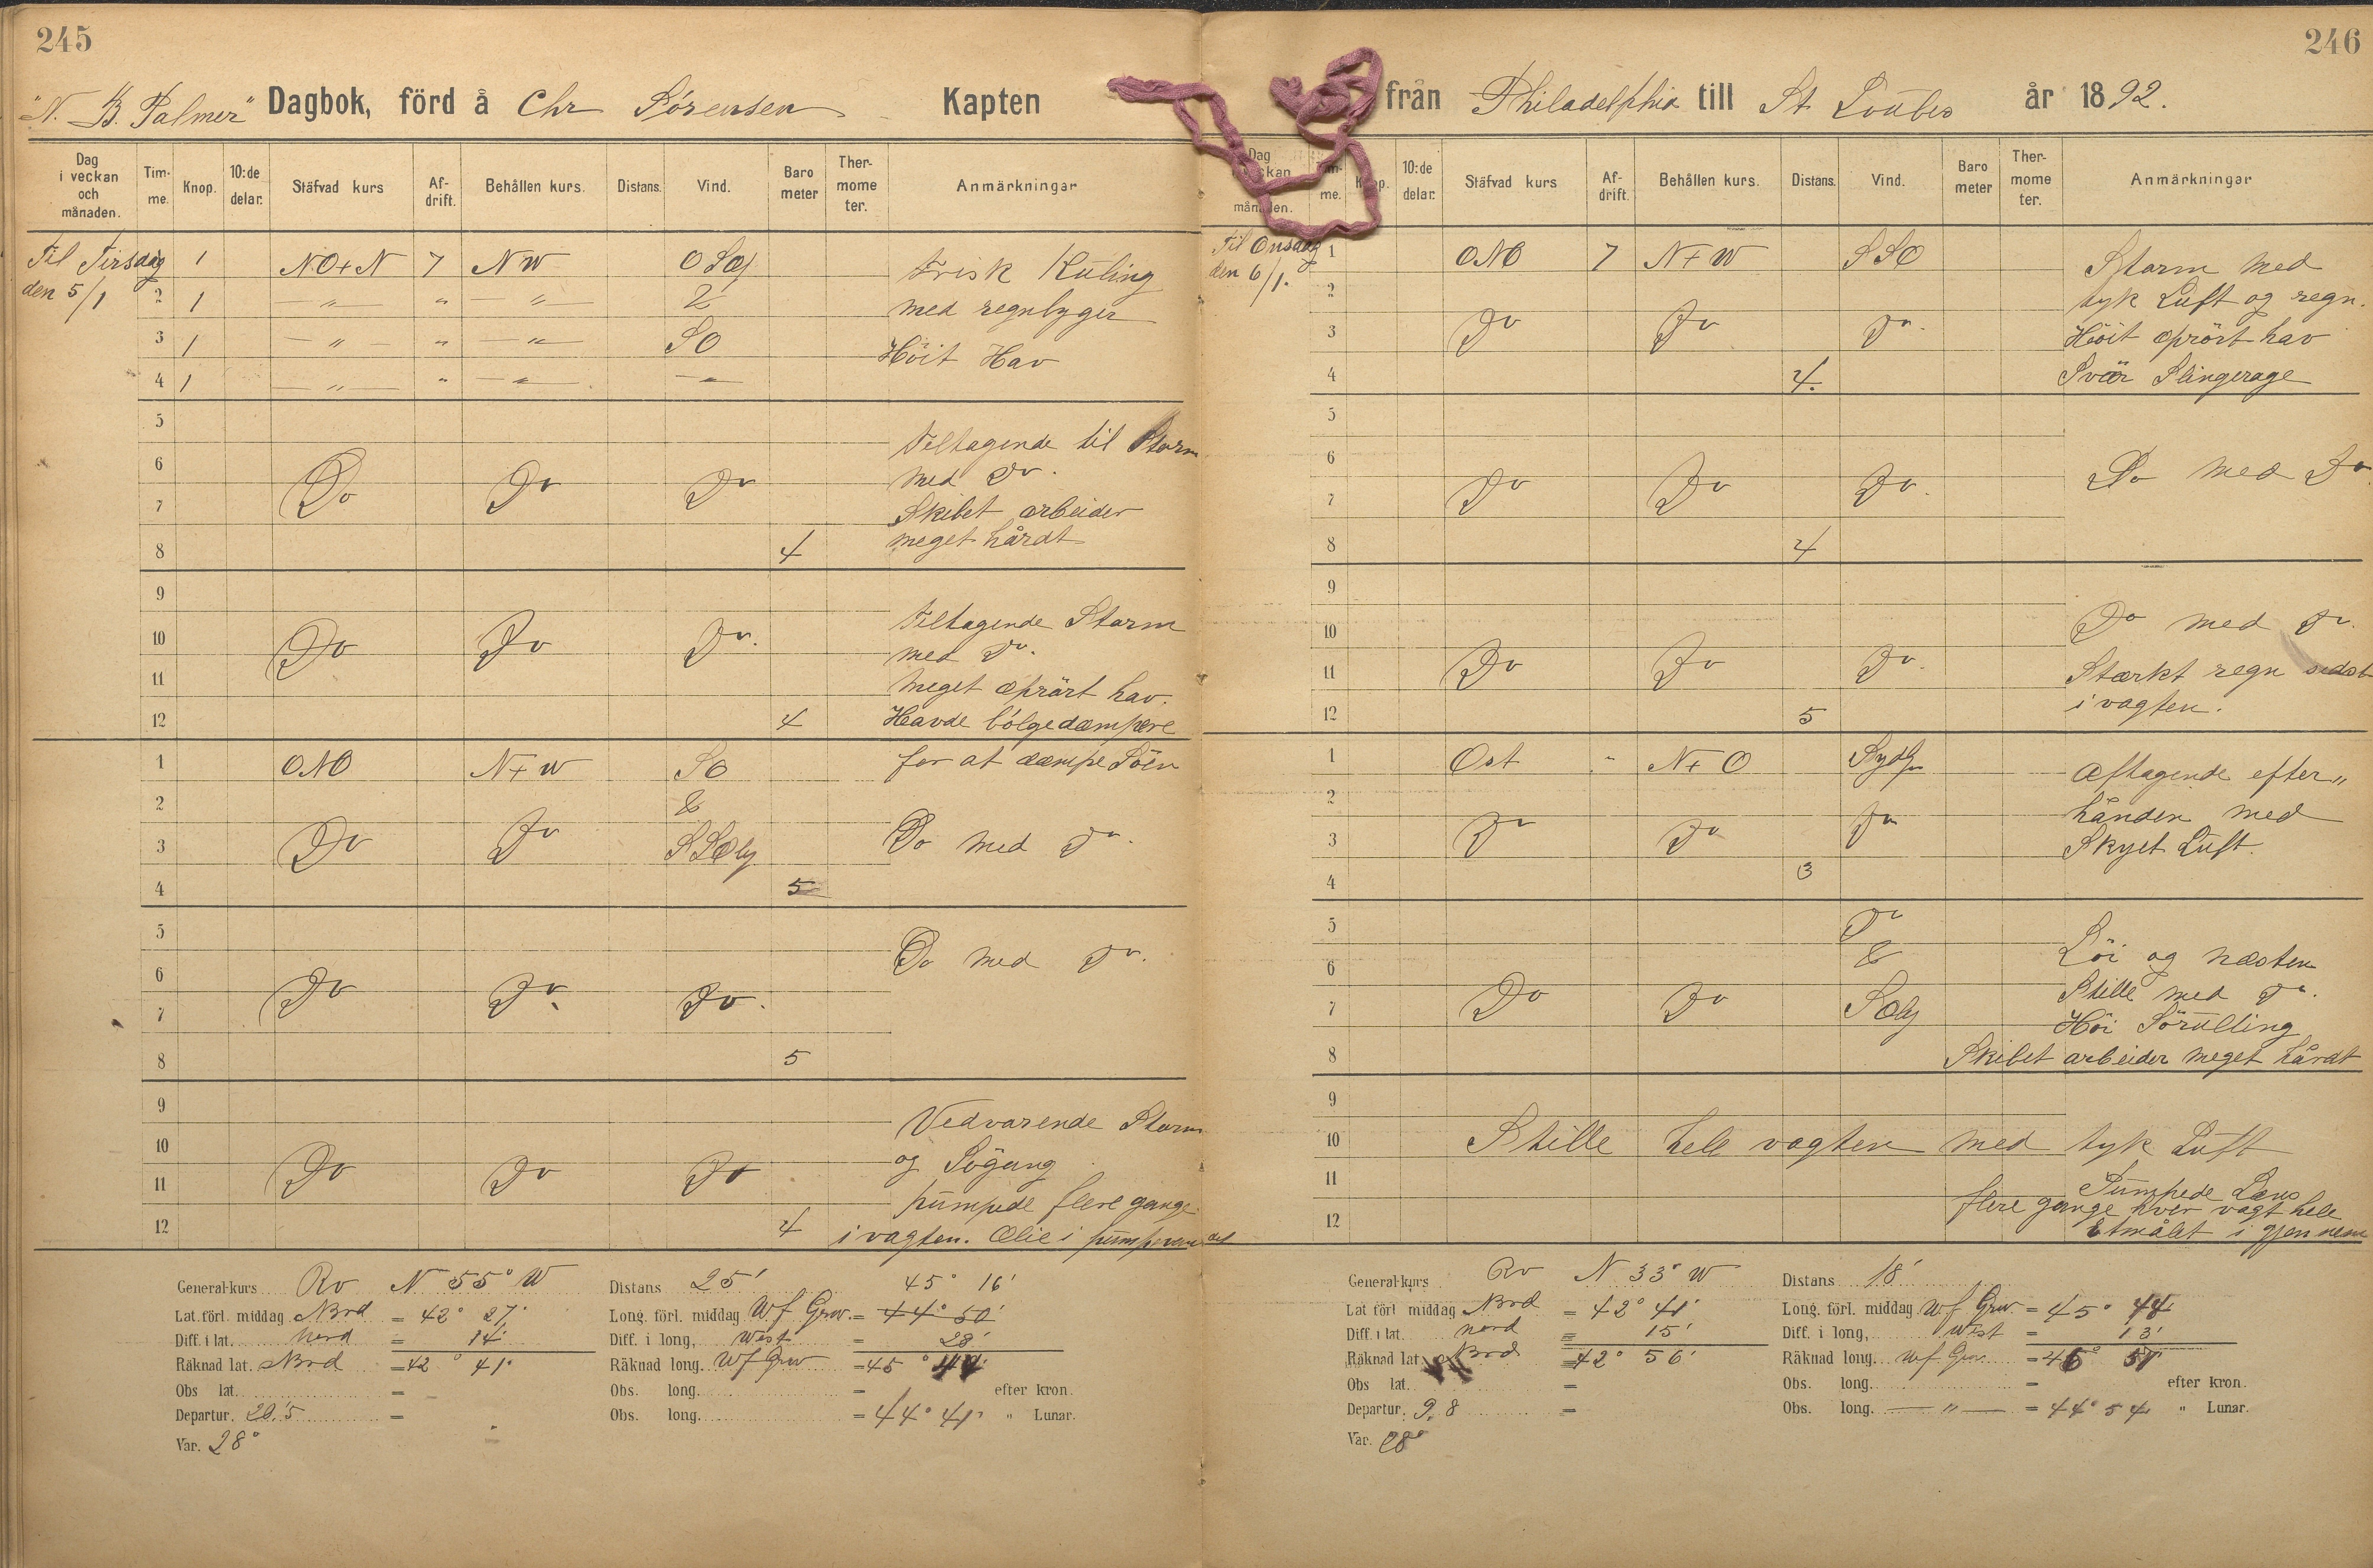 245
"N. B. Palmer" Dagbok, förd å Chr Sörensen Kapten
Dag i veckan och månaden. Timme. Knop. 10:de delar. Stäfvad kurs Afdrift. Behållen kurs. Distans. Vind. Barometer Thermometer. Anmärkningar
Til Tirsdag 1 1 NO+N 7 NW OSOlj Frisk Kuling
den 5/1 2 1 — " — " — " — & med regnbyger
3 1 — " — " — " — SO Höit Hav
4 1 — " — " — " — — " —
5
Tiltagende til Storm
6 Do Do Do med Do.
7 Skibet arbeider
8 4 meget hårdt
9
Tiltagende Storm
10 Do Do Do. med Do.
11 Meget oprört hav.
12 4 Havde bölgedæmpere
1 ONO N+W SO for at dæmpe Söen
2 &
3 Do Do SSOlj Do med Do.
4 5
5
Do med Do.
6
7 Do Do. Do.
8 5
9
Vedvarende Storm
10 og Sögang
11 Do Do Do pumpede flere gange
12 4 i vagten. Olie i pumperne
General-kurs Rv N 55° W Distans 25' 45° 16'
Lat. förl. middag Nord = 42° 27' Long. förl. middag Wf Grw. = 44° 50'
Diff. i lat. Nord = 14' Diff. i long, West = 28'
Räknad lat. Nord = 42° 41' Räknad long. Wf Grw = 45° 44'
Obs lat. = Obs. long. = efter kron.
Departur. 20.'5 = Obs. long. = 44° 41' " Lunar.
Var. 28°
246
från Philadelphia till St Loubes år 1892.
Dag i veckan och månaden. Timme. Knop. 10:de delar. Stäfvad kurs Afdrift. Behållen kurs. Distans. Vind. Barometer Thermometer. Anmärkningar
Til Onsdag 1 ONO 7 N+W SSO Storm med
den 6/1. 2 tyk Luft og regn.
3 Do Do Do. Höit oprört hav
4 4. Svær Slingerage
5
6 Do med Do.
7 Do Do Do.
8 4
9
10 Do med Do.
11 Do Do Do. Stærkt regn sidst
12 5 i vagten.
1 Ost " N+O Sydlj Aftagende efter"
2 hånden med
3 Do Do Do Skyet Luft.
4 3
5 Do
6 & Löi og næsten
7 Do Do SOlj Stille med Do.
Höi Sörulling
8 Skibet arbeider meget hårdt
9
10 Stille hele vagten med tyk Luft
11 Pumpede Læns
12 flere gange hver vagt hele
Etmålet i gjennem
General-kurs Rv N 33° W Distans 18'
Lat förl middag Nord = 42° 41' Long. förl. middag Wf Grw = 45° 44'
Diff. i lat. nord = 15' Diff. i long, West = 13'
Räknad lat Nord = 42° 56' Räknad long. Wf Grw. = 45° 57'
Obs lat. = Obs. long. = efter kron.
Departur. 9.8 = Obs. long. — " — = 44° 54' " Lunar.
Var. 28°